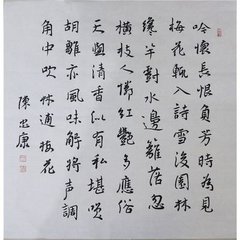 吟懷長恨負芳時為見
梅花輒入詩雪後園林
纔半樹水邊籬落忽
橫枝人憐紅艷多應俗
天與清香似有私堪笑
胡雛亦風味解將声調
角中吹 林逋梅花
陳忠康